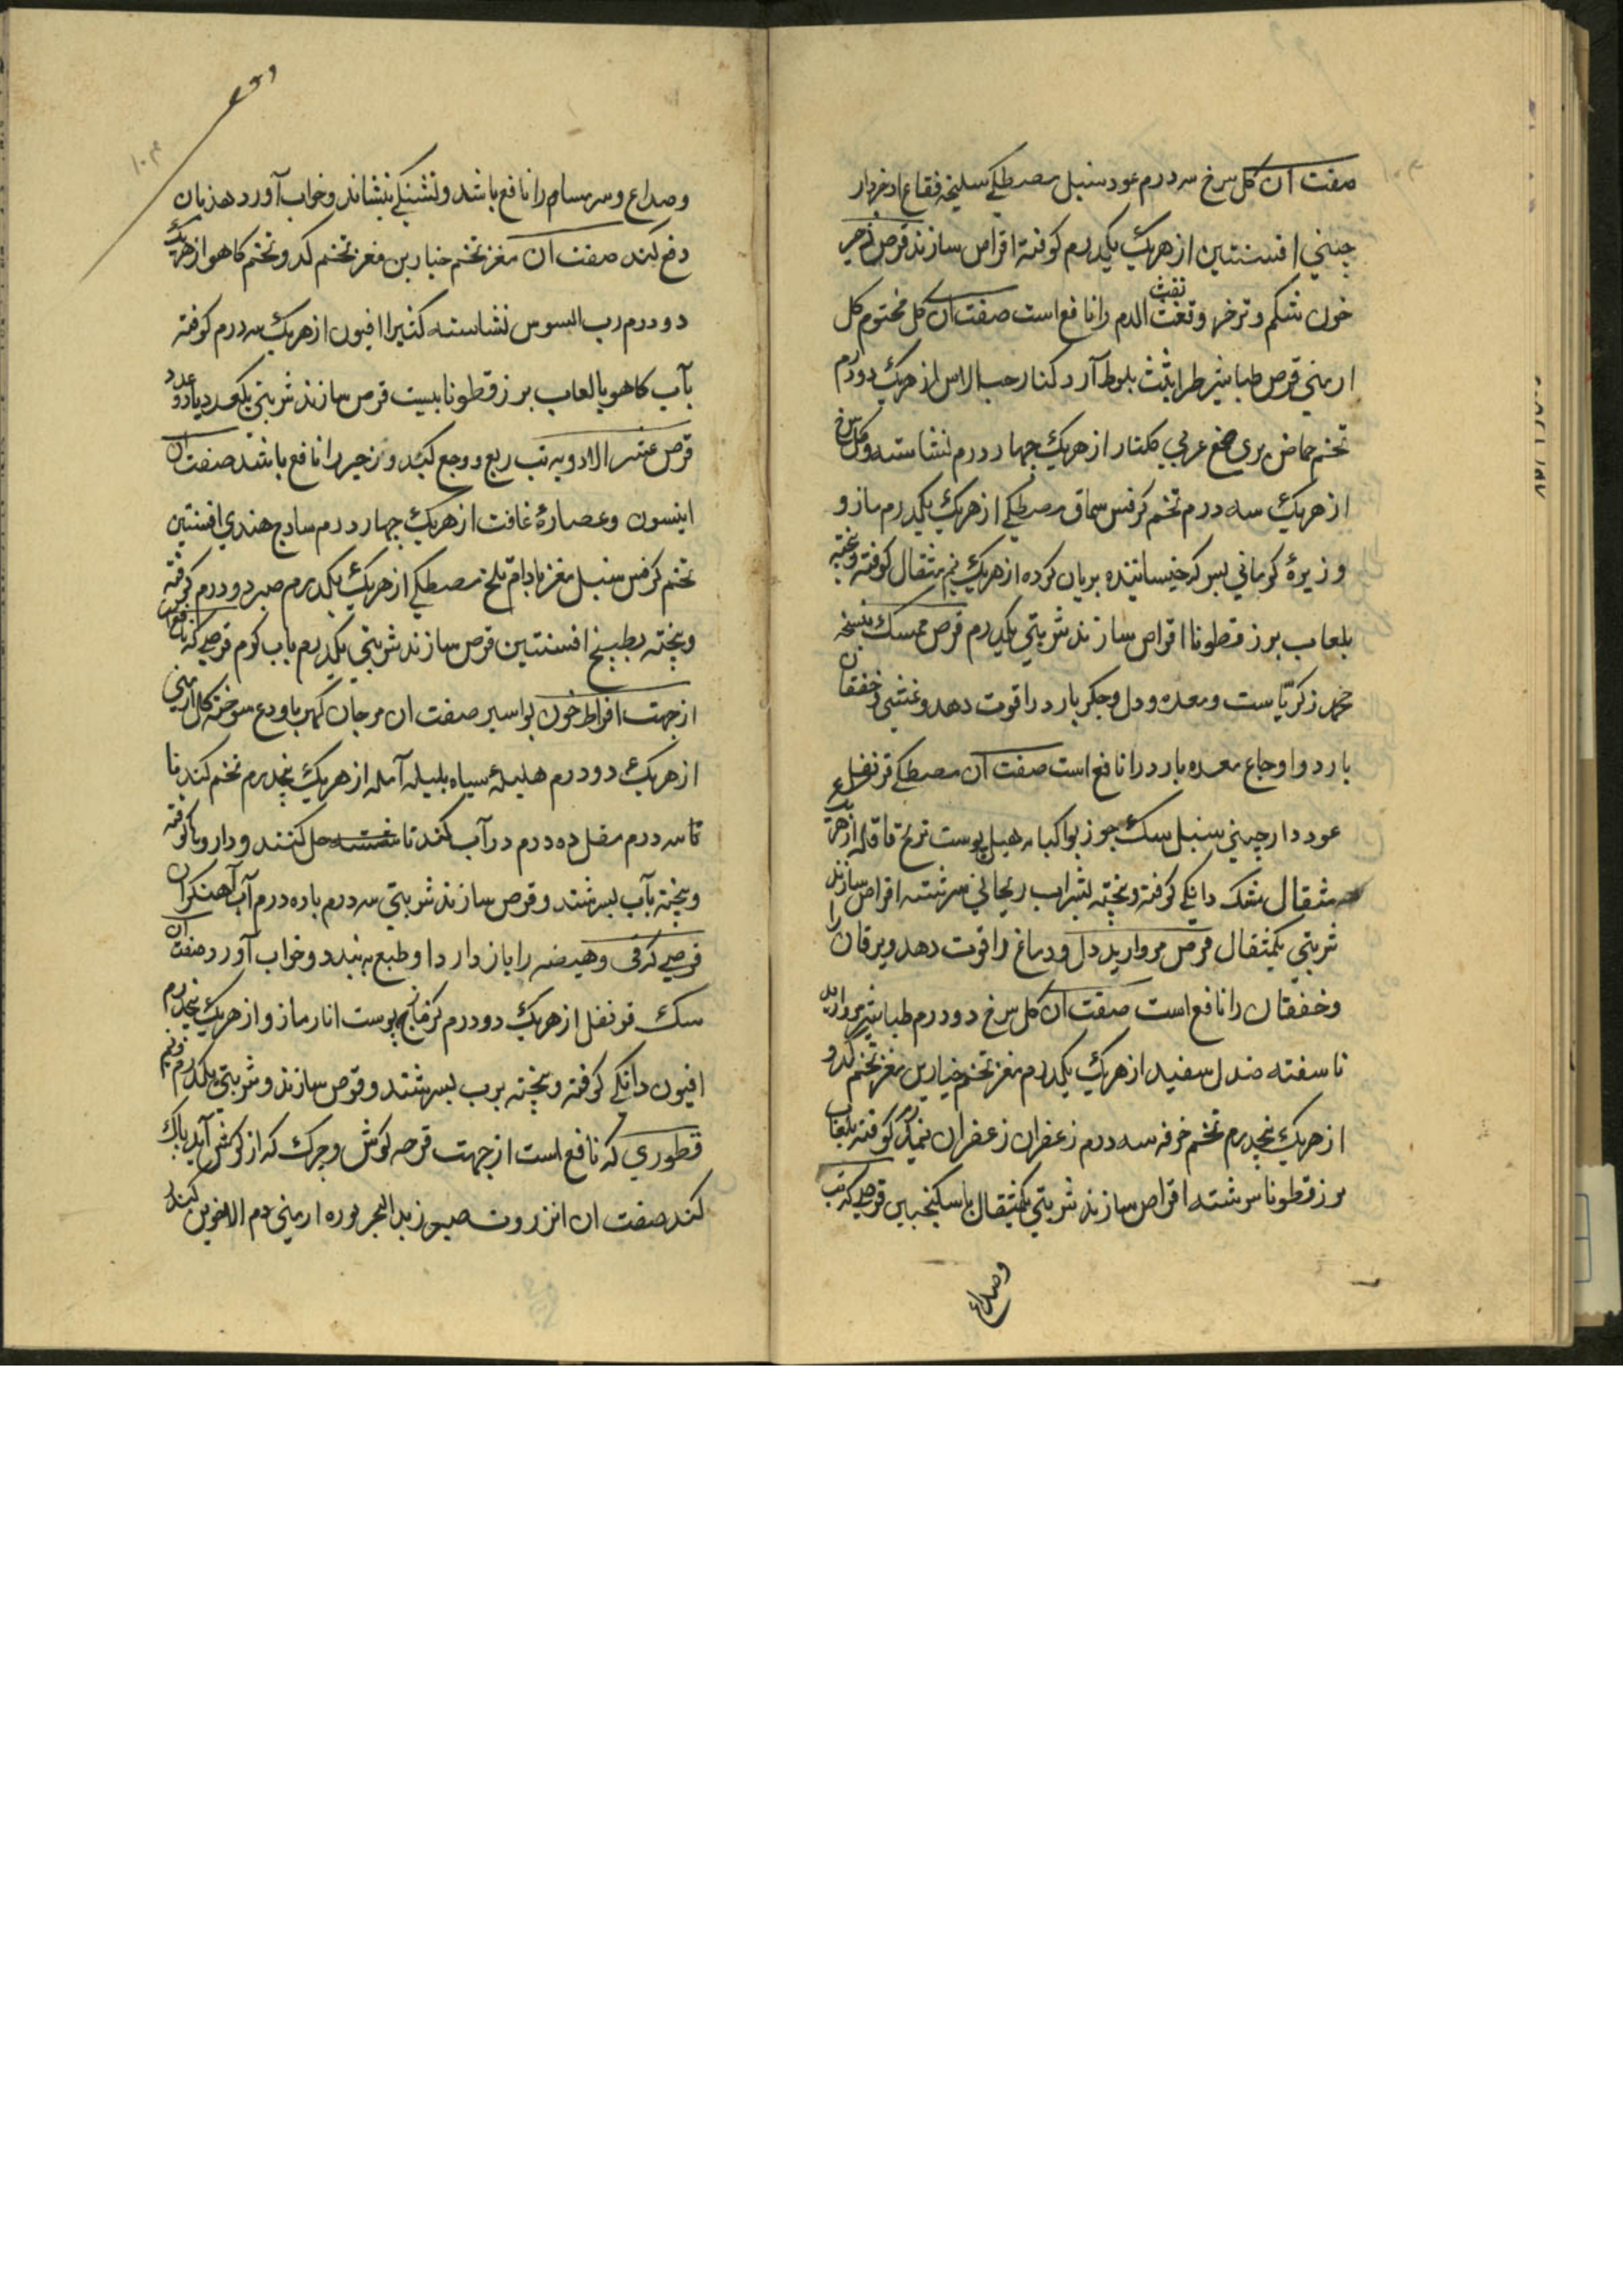 صفت آن کل سرخ سه درم عود سنبل مصطکی سلیخه فقاع اذخر دار
چینی افسنتین از هریک یکدرم کوفته اقراص سازند قرص زحیر
خون شکم و ترخر و تفث نفث الدم را نافع است صفت آن کل مختوم کل
ارمنی قرص طباشیر طراثیث بلوط آرد کنار حب الاس از هریک دودرم
تخم حماض بری صمغ عربی کلنار از هریک چهار درم نشاسته و کل سرخ
از هریک سه درم تخم کرفس سماق مصطکی از هریک یکدرم مازو
و زیرهٔ کرمانی بسرکه خیسانیده بریان کرده از هریک نیم مثقال کوفته و پخته
بلعاب برزقطونا اقراص سازند شربتی یکدرم قرص ممسک بنسخه
محمد زکریاست و معده و دل و جکر بارد را قوت دهد و غشی و خفقان
بارد و اوجاع معده بارد را نافع است صفت آن مصطکی قرنفل
عود دارچینی سنبل سک جوزبوا کبابه هیل پوست ترنج قاقله از هریک
مثقال مشک دانکی کوفته و پخته بشراب ریحانی سرشته اقراص سازند
شربتی یکمثقال قرص مروارید دل و دماغ را قوت دهد و یرقان را
و خفقان را نافع است صفت آن کل سرخ دو درم طباشیر مروارید
ناسفته صندل سفید از هریک یکدرم مغز تخم خیارین مغز تخم کدو
از هریک پنجدرم تخم خرفه سه درم زعفران زعفران نیمدرم کوفته بلعاب
برزقطونا سرشته اقراص سازند شربتی یکمثقال باسکنجبین قرصی که تب
وصداع
وصداع و سرسام را نافع باشد و تشنکی بنشاند و خواب آورد هذیان
دفع کند صفت آن مغز تخم خیارین مغز تخم کدو تخم کاهو از هریک
دو درم رب السوس نشاسته کتیرا افیون از هریک سه درم کوفته
بآب کاهو یا لعاب برزقطونا بیست قرص سازند شربتی یکعدد یا دو عدد
قرص عشر الادویه تب ربع و وجع کبد و زحیر را نافع باشد صفت آن
انیسون و عصارهٔ غافت از هریک چهار درم سادج هندی افسنتین
تخم کرفس سنبل مغز بادام تلخ مصطکی از هریک یکدرم صبر دو درم کوفته
و پخته بطبیخ افسنتین قرص سازند شربتی یکدرم بآب کرم قرصی که نافع بود
از جهت افراط خون بواسیر صفت آن مرجان کهربا ودع سوخته کل ارمنی
از هریک دو درم هلیلهٔ سیاه بلیله آمله از هریک پنجدرم تخم کندنا
تا سه درم مقل ده درم در آب کند تا حل کنند و داروها کوفته
و پخته بآب بسرشند و قرص سازند شربتی سه درم با ده درم آب آهنکران
قرصی که قی و هیضه را باز دارد و طبع به بندد و خواب آورد صفت آن
سک قرنفل از هریک دو درم پوست انار مازو از هریک پنجدرم
افیون دانکی کوفته و پخته برب بسرشند و قرص سازند و شربتی یکدرم و نیم
قطوری که نافع است از جهت قرحه کوش و چرک که از کوش آید پاک
کند صفت آن انزروت صبر زبد البحر بوره ارمنی دم الاخوین کندر